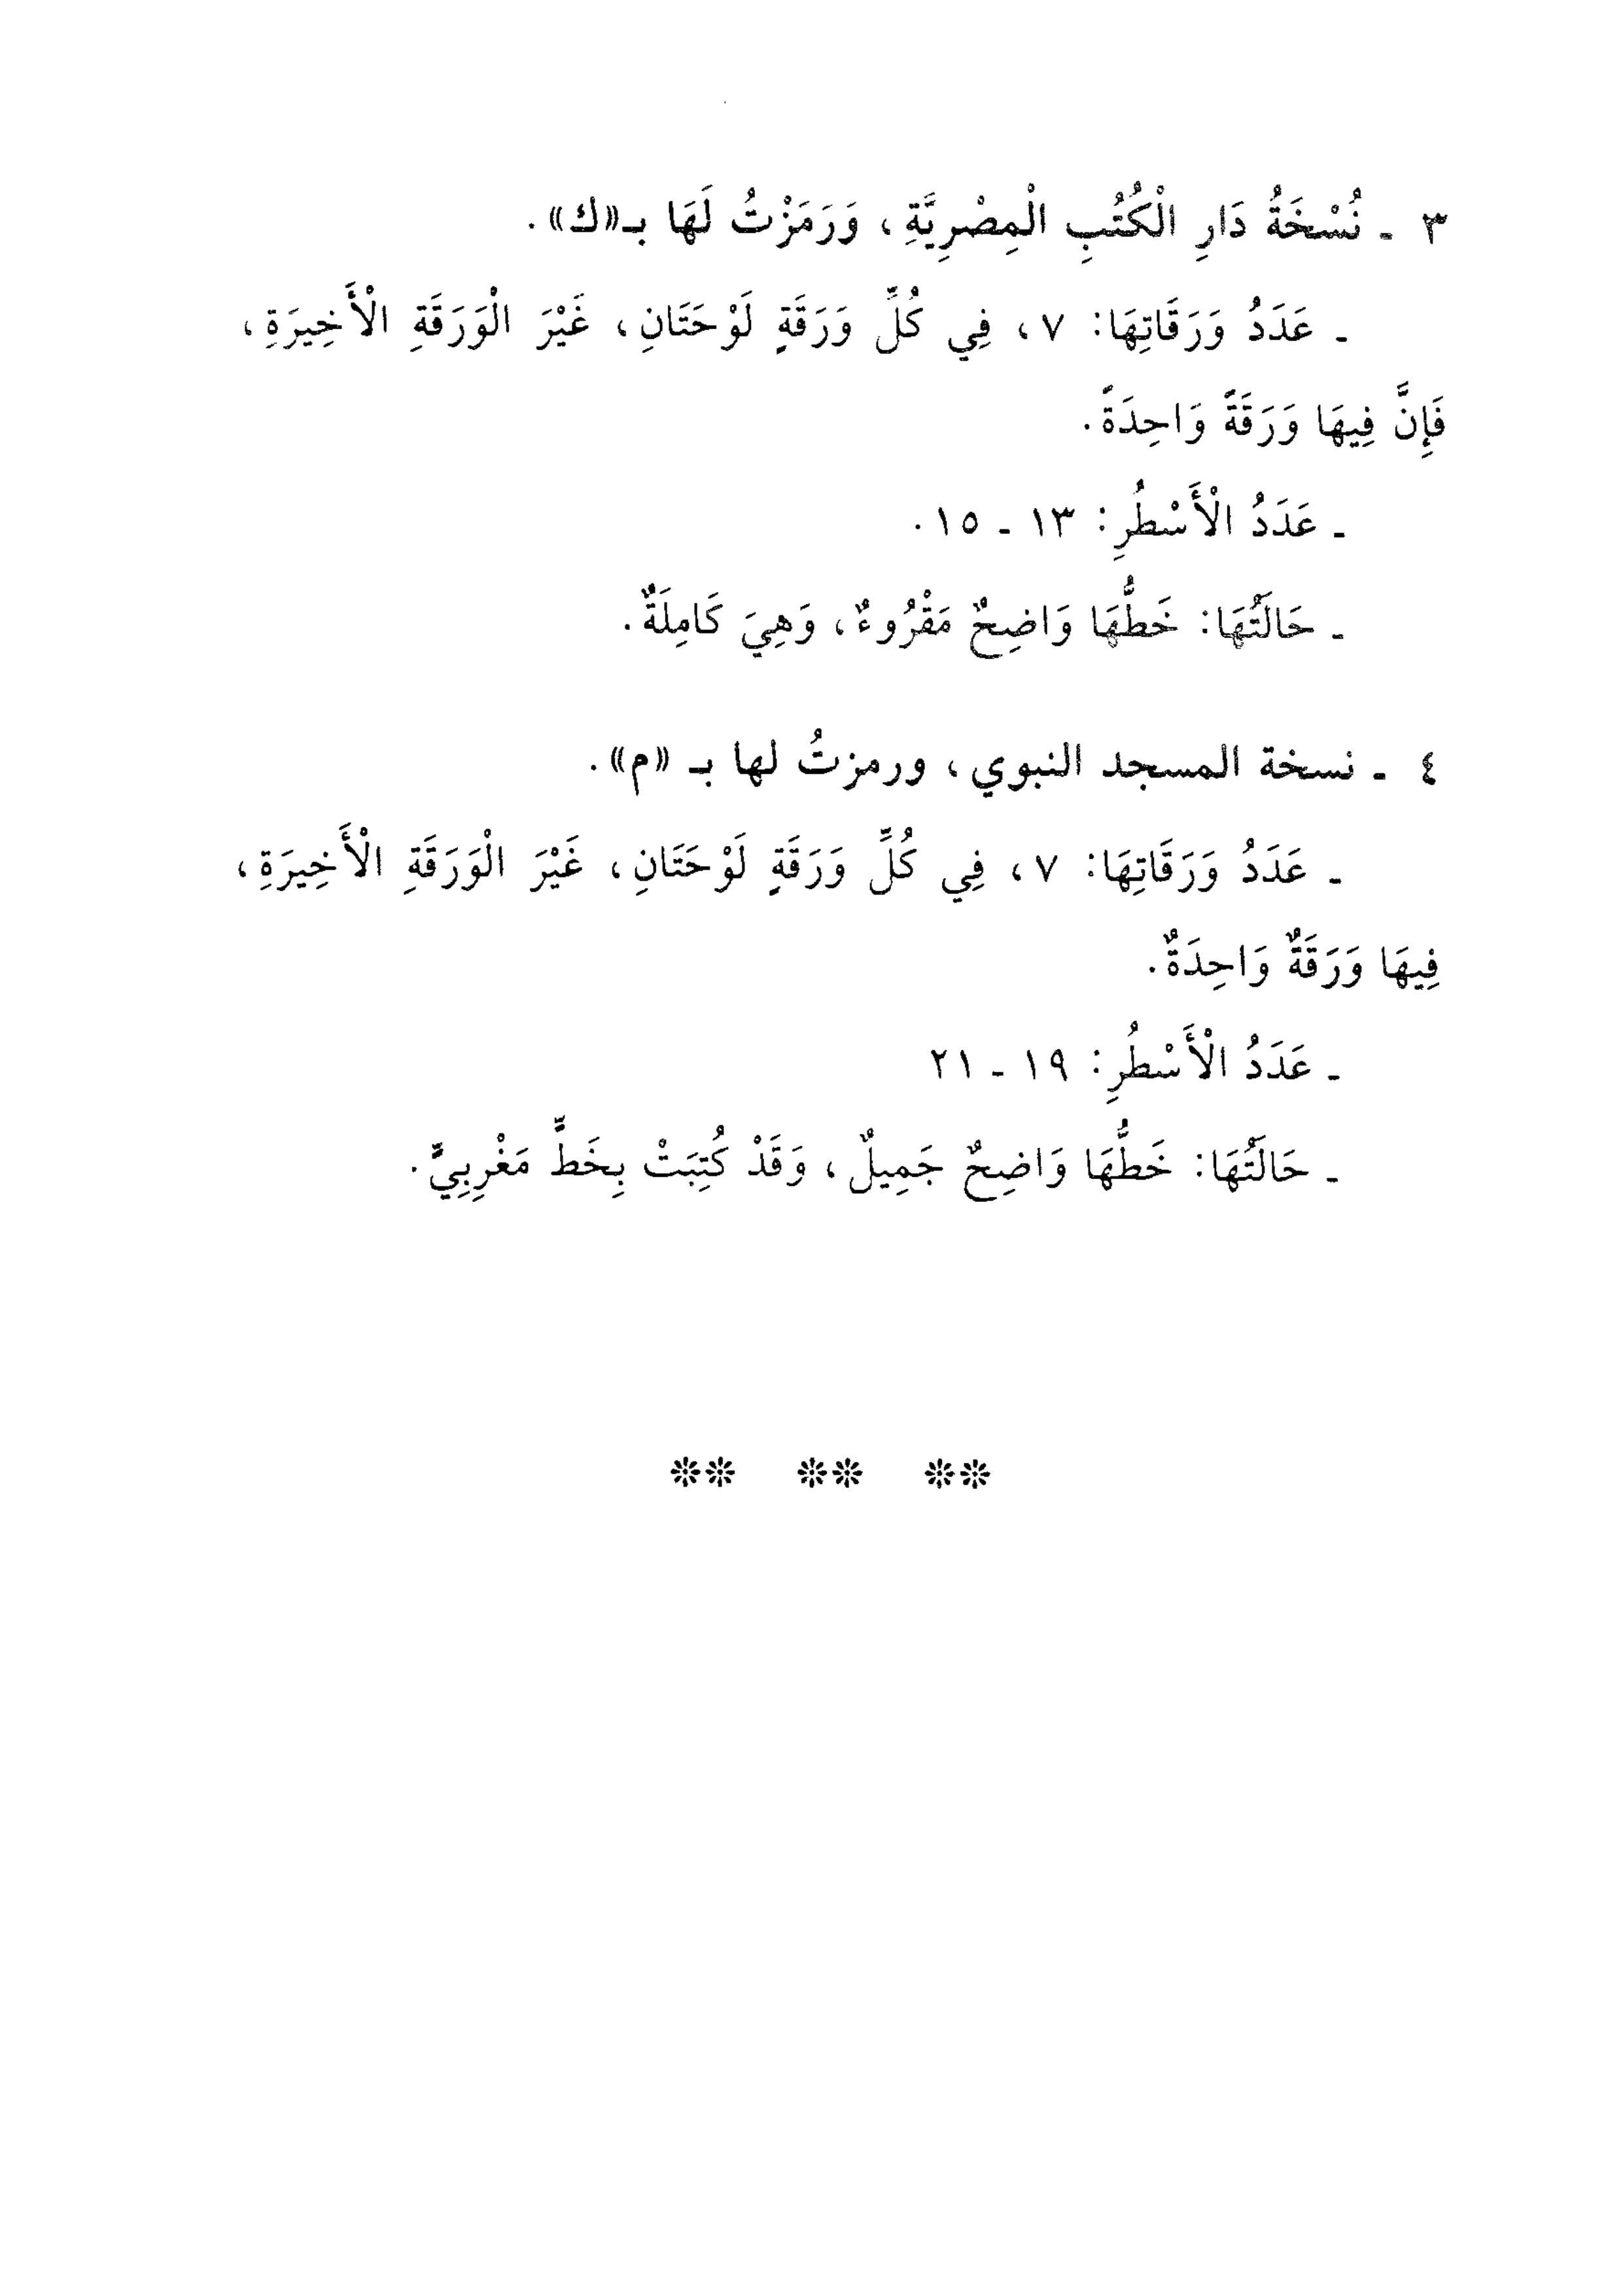 ٣ ـ نُسْخَةُ دَارِ الْكُتُبِ الْمِصْرِيَّةِ، وَرَمَزْتُ لَهَا بـ«ك».
ـ عَدَدُ وَرَقَاتِهَا: ٧، فِي كُلِّ وَرَقَةٍ لَوْحَتَانِ، غَيْرَ الْوَرَقَةِ الْأَخِيرَةِ،
فَإِنَّ فِيهَا وَرَقَةً وَاحِدَةً.
ـ عَدَدُ الْأَسْطُرِ: ١٣ ـ ١٥.
ـ حَالَتُهَا: خَطُّهَا وَاضِحٌ مَقْرُوءٌ، وَهِيَ كَامِلَةٌ.
٤ ـ نسخة المسجد النبوي، ورمزتُ لها بـ «م».
ـ عَدَدُ وَرَقَاتِهَا: ٧، فِي كُلِّ وَرَقَةٍ لَوْحَتَانِ، غَيْرَ الْوَرَقَةِ الْأَخِيرَةِ،
فِيهَا وَرَقَةٌ وَاحِدَةٌ.
ـ عَدَدُ الْأَسْطُرِ: ١٩ ـ ٢١
ـ حَالَتُهَا: خَطُّهَا وَاضِحٌ جَمِيلٌ، وَقَدْ كُتِبَتْ بِخَطٍّ مَغْرِبِيٍّ.